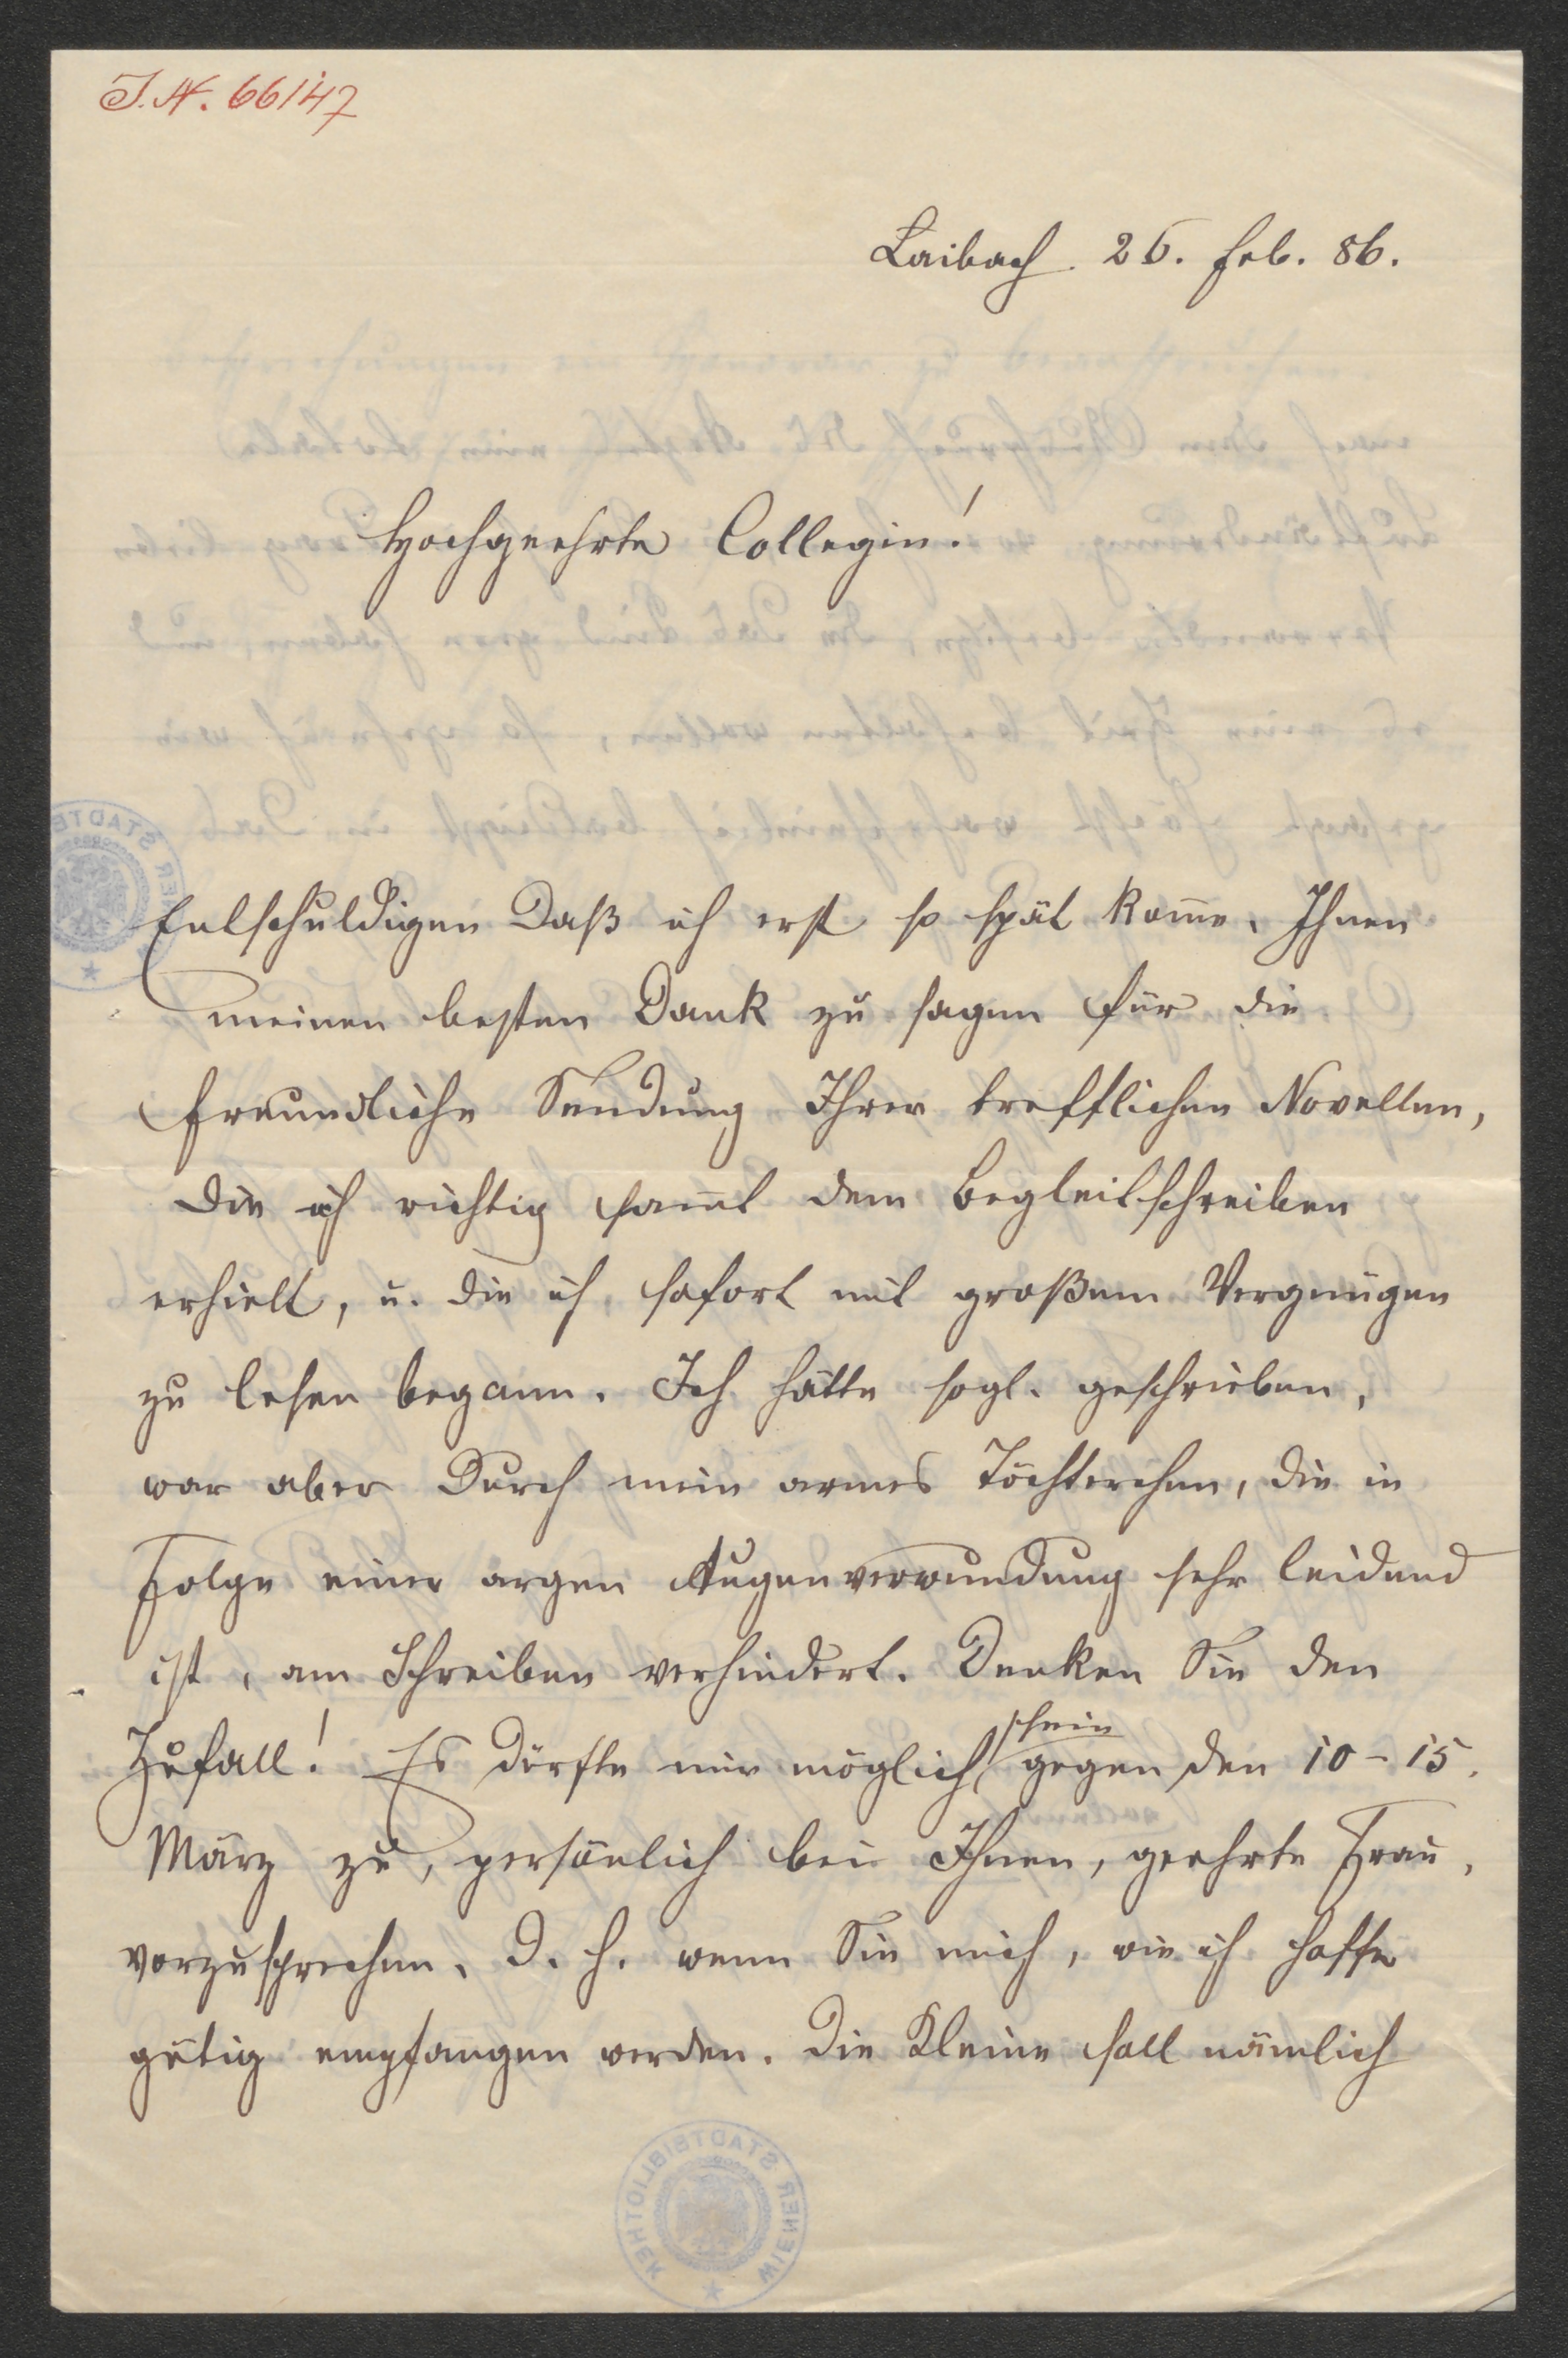 J. N. 66147
Laibach. 26. Feb. 86.
Hochgeehrte Collegin!
Entschuldigen daß ich erst so spät kom̅e, Ihnen
meinen besten Dank zu sagen für die
freundliche Sendung Ihrer trefflichen Novellen,
die ich richtig sam̅t dem Begleitschreiben
erhielt, u. die ich sofort mit großem Vergnügen
zu lesen begann. Ich hätte sogl. geschrieben,
war aber durch mein armes Töchterchen, die in
Folge einer argen Augenverwundung sehr leidend
ist, am Schreiben verhindert. Denken Sie den
Zufall! Es dürfte mir möglich sein gegen den 10-15.
März zu, persönlich bei Ihnen, geehrte Frau,
vorzusprechen, d. h. wenn Sie mich, wie ich hoffe
gütig empfangen werden. Die Kleine soll nämlich
WIENER STADTBIBLIOTHEK